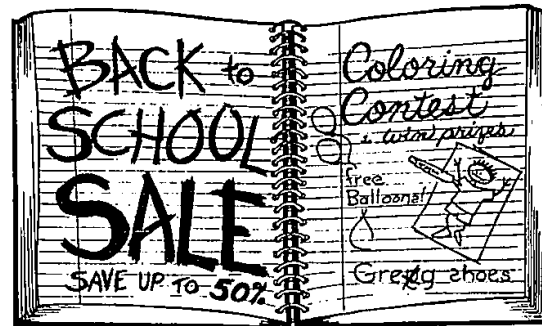 BACK to
SCHOOL
SALE
SAVE UP TO 50%
Coloring
Contest
win prizes
free
Balloons!
shoes